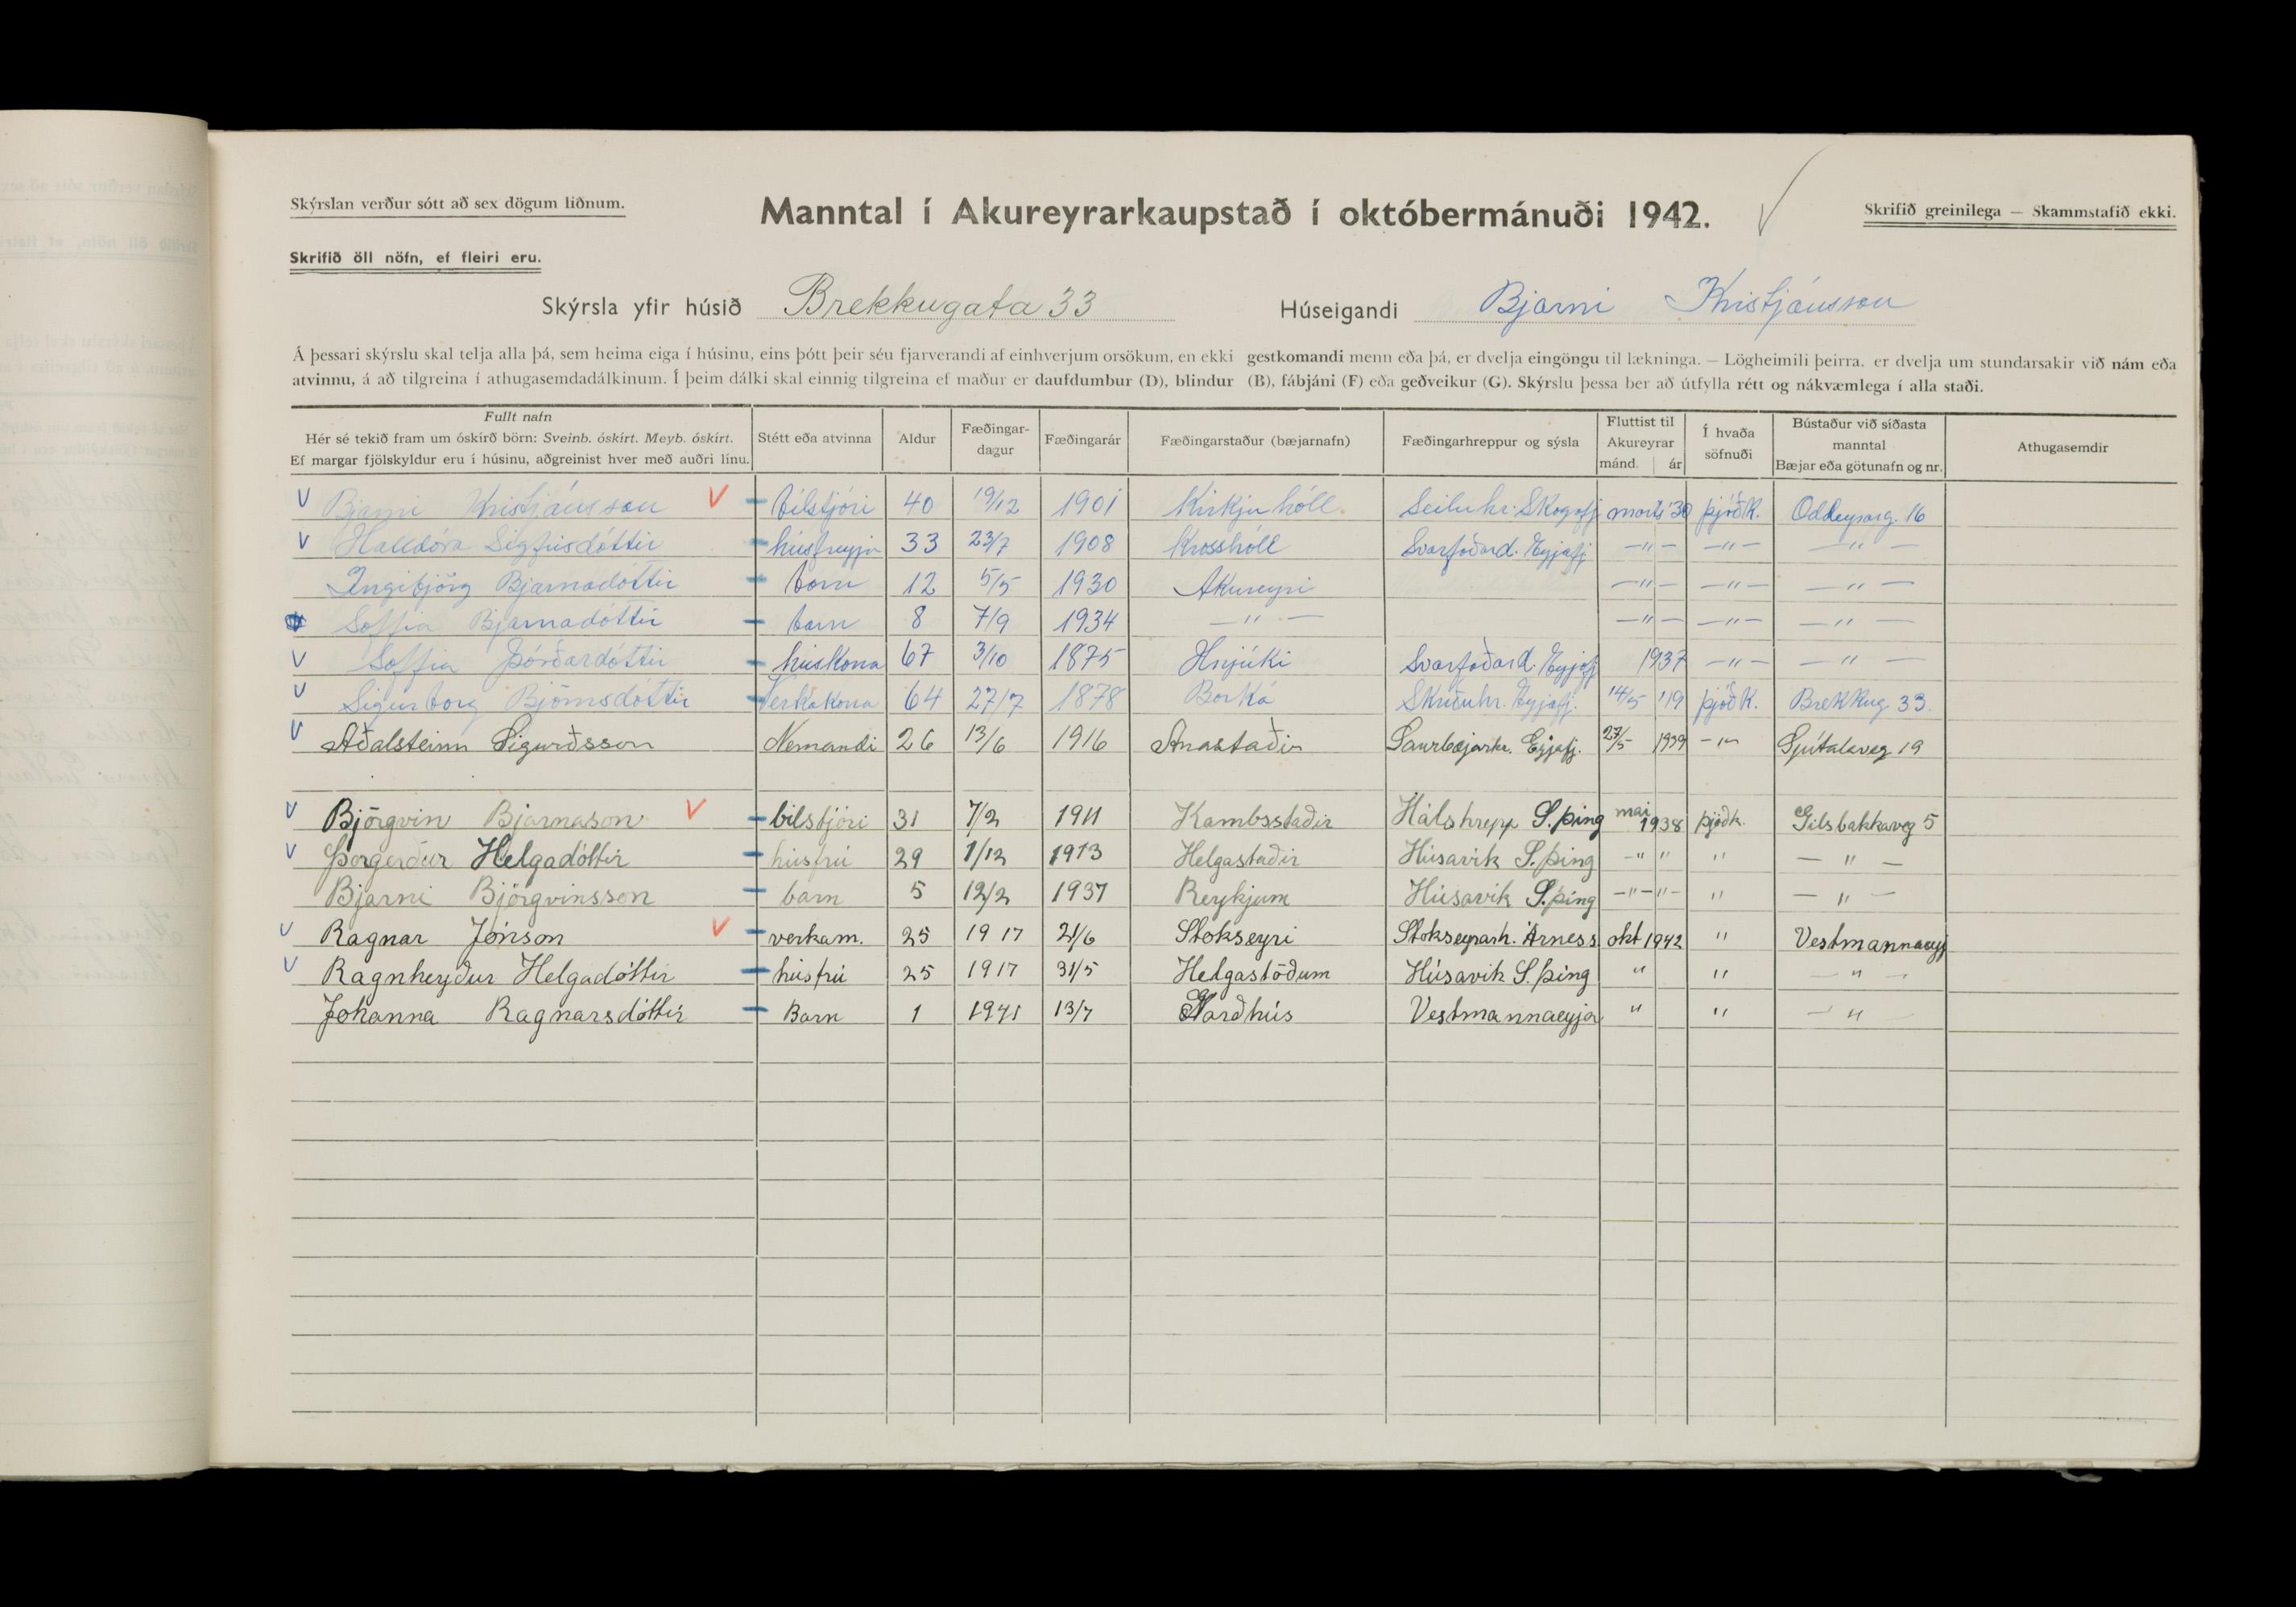 Skýrslan verður sótt að sex dögum liðnum.
Manntal í Akureyrarkaupstað í októbermánuði 1942.
Skrifið greinilega — Skammstafið ekki.
Skrifið öll nöfn, ef fleiri eru.
Skýrsla yfir húsið Brekkugata 33 Húseigandi Bjarni Kristjánsson
Á þessari skýrslu skal telja alla þá, sem heima eiga í húsinu, eins þótt þeir séu fjarverandi af einhverjum orsökum, en ekki gestkomandi menn eða þá, er dvelja eingöngu til lækninga. — Lögheimili þeirra, er dvelja um stundarsakir við nám eða
atvinnu, á að tilgreina í athugasemdadálkinum. Í þeim dálki skal einnig tilgreina ef maður er daufdumbur (D), blindur (B), fábjáni (F) eða geðveikur (G). Skýrslu þessa ber að útfylla rétt og nákvæmlega í alla staði.
Fullt nafn
Hér sé tekið fram um óskírð börn: Sveinb. óskírt. Meyb. óskírt.
Ef margar fjölskyldur eru í húsinu, aðgreinist hver með auðri línu.
Stétt eða atvinna
Aldur
Fæðingar-
dagur
Fæðingarár
Fæðingarstaður (bæjarnafn)
Fæðingarhreppur og sýsla
Fluttist til
Akureyrar
mánd. ár
Í hvaða
söfnuði
Bústaður við síðasta
manntal
Bæjar eða götunafn og nr.
Athugasemdir
V Bjarni Kristjánsson V bílstjóri 40 19/12 1901 Kirkjuhóll. Seiluhr. Skagafj marts '30 þjóðk. Oddeyrarg. 16
V Halldóra Sigfúsdóttir húsfreyja 33 23/7 1908 Krosshóll Svarfaðard. Eyjafj —"— —"— —"—
Ingibjörg Bjarnadóttir barn 12 5/5 1930 Akureyri —"— —"— —"—
Soffia Bjarnadóttir barn 8 7/9 1934 —"— —"— —"— —"—
V Soffia Þórðardóttir húskona 67 3/10 1875 Hnjúki Svarfaðard. Eyjafj 1937 —"— —"—
V Sigurborg Björnsdóttir Verkakona 64 27/7 1878 Barká Skriðuhr. Eyjafj. 14/5 '19 þjóðk. Brekkug 33.
V Aðalsteinn Sigurðsson Nemandi 26 13/6 1916 Anastaðir Saurbæjarhr. Eyjafj. 27/5 1939 —"— Spítalaveg 19
V Björgvin Bjarnason V bílstjóri 31 7/2 1911 Kambsstaðir Hálshrepp S.þing mai 1938 þjóðk. Gilsbakkaveg 5
V Þorgerður Helgadóttir húsfrú 29 1/12 1913 Helgastaðir Húsavik S.þing —" " " — " —
Bjarni Björgvinsson barn 5 12/2 1937 Reykjum Húsavik S.þing —"—"— " — " —
V Ragnar Jónson V verkam. 25 1917 21/6 Stokseyri Stokseyrarh. Árness okt 1942 " Vestmannaeyj
V Ragnheyður Helgadóttir húsfrú 25 1917 31/5 Helgastöðum Húsavik S.þing " " — " —
Johanna Ragnarsdóttir Barn 1 1941 13/7 Garðhús Vestmannaeyja " " — " —